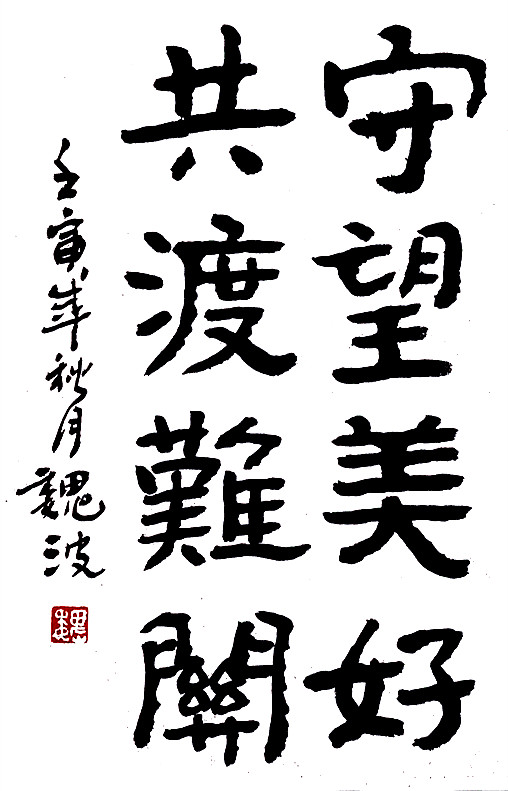 守望美好
共渡難關
壬寅年秋月魏波